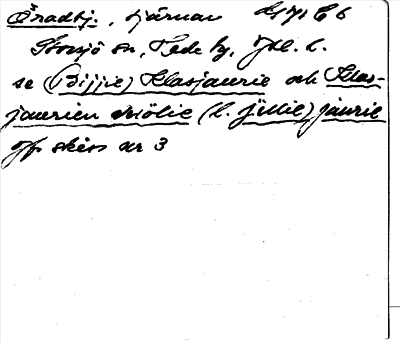 Öradtj., tjärnar 21 71 C 6
Storsjö sn, Fede by, Jtl. l.
se (Bijjie) Klasjaurie och Klas-
jaurien Miölie (l. jillie) jaurie
jfr skiss nr 3